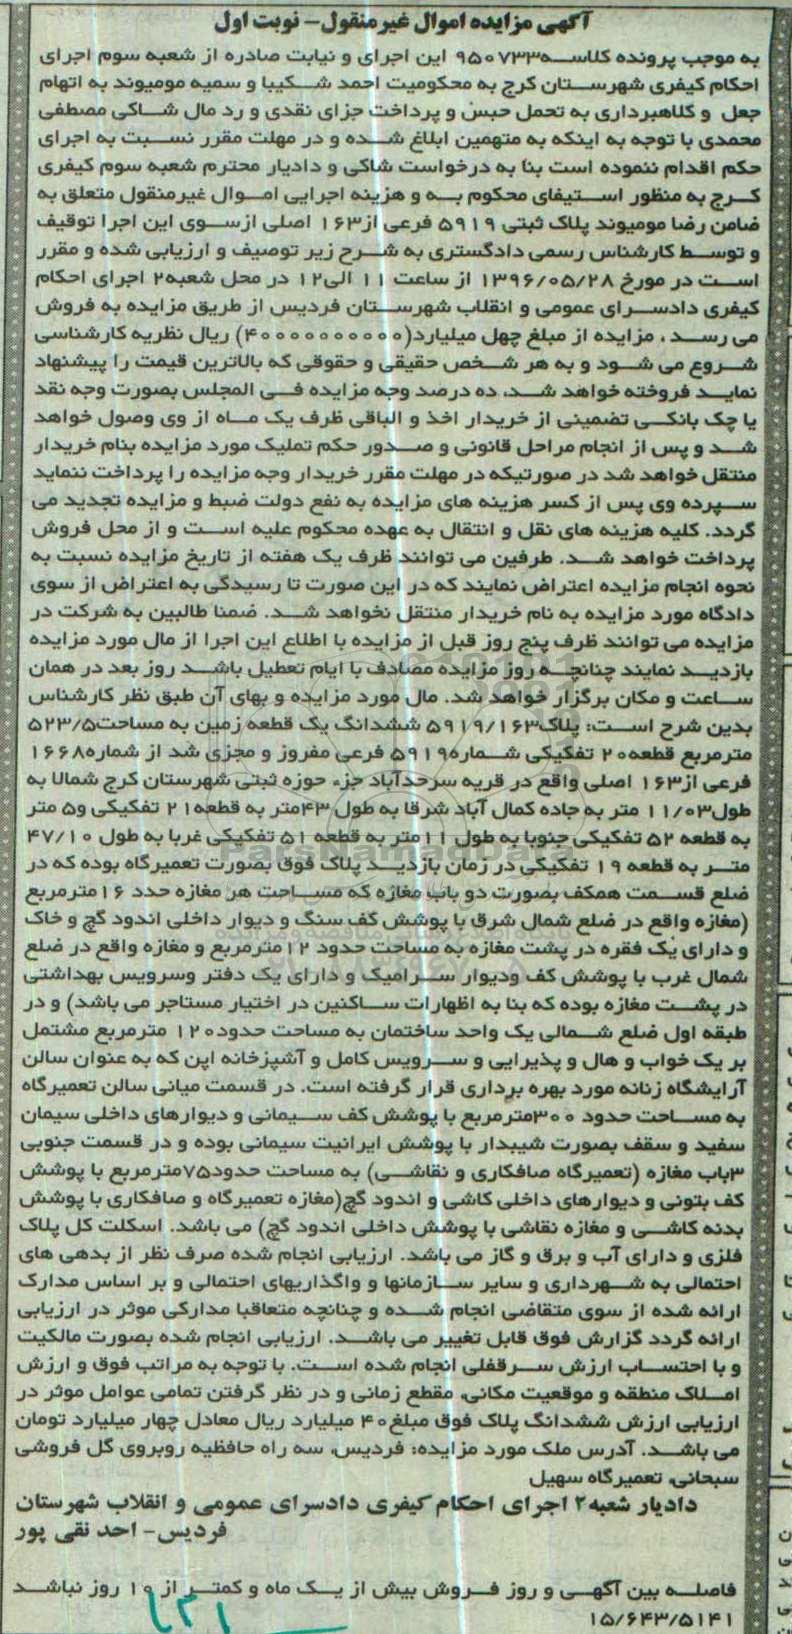 آگهی مزایده اموال غیرمنقول- نوبت اول
به موجب پرونده کلاسه۹۵۰۷۳۳ این اجرای و نیابت صادره از شعبه سوم اجرای
احکام کیفری شهرستان کرج به محکومیت احمد شکیبا و سمیه مومیوند به اتهام
جعل و کلاهبرداری به تحمل حبس و پرداخت جزای نقدی و رد مال شاکی مصطفی
محمدی با توجه به اینکه به متهمین ابلاغ شده و در مهلت مقرر نسبت به اجرای
حکم اقدام ننموده است بنا به درخواست شاکی و دادیار محترم شعبه سوم کیفری
کرج به منظور استیفای محکوم به و هزینه اجرایی اموال غیرمنقول متعلق به
ضامن رضا مومیوند پلاک ثبتی ۵۹۱۹ فرعی از۱۶۳ اصلی ازسوی این اجرا توقیف
و توسط کارشناس رسمی دادگستری به شرح زیر توصیف و ارزیابی شده و مقرر
است در مورخ ۱۳۹۶/۰۵/۲۸ از ساعت ۱۱ الی۱۲ در محل شعبه۲ اجرای احکام
کیفری دادسرای عمومی و انقلاب شهرستان فردیس از طریق مزایده به فروش
می رسد، مزایده از مبلغ چهل میلیارد(۴۰۰۰۰۰۰۰۰۰۰) ریال نظریه کارشناسی
شروع می شود و به هر شخص حقیقی و حقوقی که بالاترین قیمت را پیشنهاد
نماید فروخته خواهد شد، ده درصد وجه مزایده فی المجلس بصورت وجه نقد
یا چک بانکی تضمینی از خریدار اخذ و الباقی ظرف یک ماه از وی وصول خواهد
شد و پس از انجام مراحل قانونی و صدور حکم تملیک مورد مزایده بنام خریدار
منتقل خواهد شد در صورتیکه در مهلت مقرر خریدار وجه مزایده را پرداخت ننماید
سپرده وی پس از کسر هزینه های مزایده به نفع دولت ضبط و مزایده تجدید می
گردد. کلیه هزینه های نقل و انتقال به عهده محکوم علیه است و از محل فروش
پرداخت خواهد شد. طرفین می توانند ظرف یک هفته از تاریخ مزایده نسبت به
نحوه انجام مزایده اعتراض نمایند که در این صورت تا رسیدگی به اعتراض از سوی
دادگاه مورد مزایده به نام خریدار منتقل نخواهد شد. ضمنا طالبین به شرکت در
مزایده می توانند ظرف پنج روز قبل از مزایده با اطلاع این اجرا از مال مورد مزایده
بازدید نمایند چنانچه روز مزایده مصادف با ایام تعطیل باشد روز بعد در همان
ساعت و مکان برگزار خواهد شد. مال مورد مزایده و بهای آن طبق نظر کارشناس
بدین شرح است: پلاک۵۹۱۹/۱۶۳ ششدانگ یک قطعه زمین به مساحت۵۲۳/۵
مترمربع قطعه۲۰ تفکیکی شماره۵۹۱۹ فرعی مفروز و مجزی شد از شماره۱۶۶۸
فرعی از۱۶۳ اصلی واقع در قریه سرحدآباد جزء حوزه ثبتی شهرستان کرج شمالا به
طول۱۱/۰۳ متر به جاده کمال آباد شرقا به طول ۴۳متر به قطعه۲۱ تفکیکی و۵ متر
به قطعه ۵۲ تفکیکی جنوبا به طول ۱۱متر به قطعه ۵۱ تفکیکی غربا به طول ۴۷/۱۰
متر به قطعه ۱۹ تفکیکی در زمان بازدید پلاک فوق بصورت تعمیرگاه بوده که در
ضلع قسمت همکف بصورت دو باب مغازه که مساحت هر مغازه حدد ۱۶مترمربع
(مغازه واقع در ضلع شمال شرق با پوشش کف سنگ و دیوار داخلی اندود گچ و خاک
و دارای یک فقره در پشت مغازه به مساحت حدود ۱۲مترمربع و مغازه واقع در ضلع
شمال غرب با پوشش کف ودیوار سرامیک و دارای یک دفتر وسرویس بهداشتی
در پشت مغازه بوده که بنا به اظهارات ساکنین در اختیار مستاجر می باشد) و در
طبقه اول ضلع شمالی یک واحد ساختمان به مساحت حدود۱۲۰ مترمربع مشتمل
بر یک خواب و هال و پذیرایی و سرویس کامل و آشپزخانه اپن که به عنوان سالن
آرایشگاه زنانه مورد بهره برداری قرار گرفته است. در قسمت میانی سالن تعمیرگاه
به مساحت حدود ۳۰۰مترمربع با پوشش کف سیمانی و دیوارهای داخلی سیمان
سفید و سقف بصورت شیبدار با پوشش ایرانیت سیمانی بوده و در قسمت جنوبی
۳باب مغازه (تعمیرگاه صافکاری و نقاشی) به مساحت حدود۷۵مترمربع با پوشش
کف بتونی و دیوارهای داخلی کاشی و اندود گچ(مغازه تعمیرگاه و صافکاری با پوشش
بدنه کاشی و مغازه نقاشی با پوشش داخلی اندود گچ) می باشد. اسکلت کل پلاک
فلزی و دارای آب و برق و گاز می باشد. ارزیابی انجام شده صرف نظر از بدهی های
احتمالی به شهرداری و سایر سازمانها و واگذاریهای احتمالی و بر اساس مدارک
ارائه شده از سوی متقاضی انجام شده و چنانچه متعاقبا مدارکی موثر در ارزیابی
ارائه گردد گزارش فوق قابل تغییر می باشد. ارزیابی انجام شده بصورت مالکیت
و با احتساب ارزش سرقفلی انجام شده است. با توجه به مراتب فوق و ارزش
املاک منطقه و موقعیت مکانی، مقطع زمانی و در نظر گرفتن تمامی عوامل موثر در
ارزیابی ارزش ششدانگ پلاک فوق مبلغ۴۰ میلیارد ریال معادل چهار میلیارد تومان
می باشد. آدرس ملک مورد مزایده: فردیس، سه راه حافظیه روبروی گل فروشی
سبحانی، تعمیرگاه سهیل
دادیار شعبه۲ اجرای احکام کیفری دادسرای عمومی و انقلاب شهرستان
فردیس- احد نقی پور
فاصله بین آگهی و روز فروش بیش از یک ماه و کمتر از ۱۰ روز نباشد
۱۵/۶۴۳/۵۱۴۱